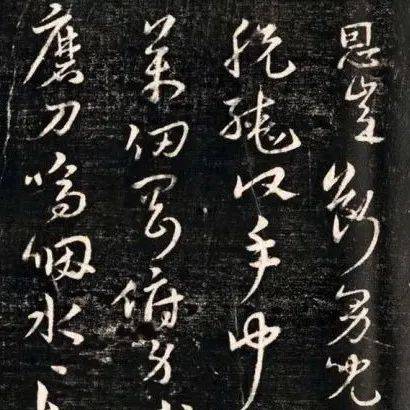 恩豈斷男兒
脫轡頭手中
萬仞岡俯身
磨刀嗚咽水